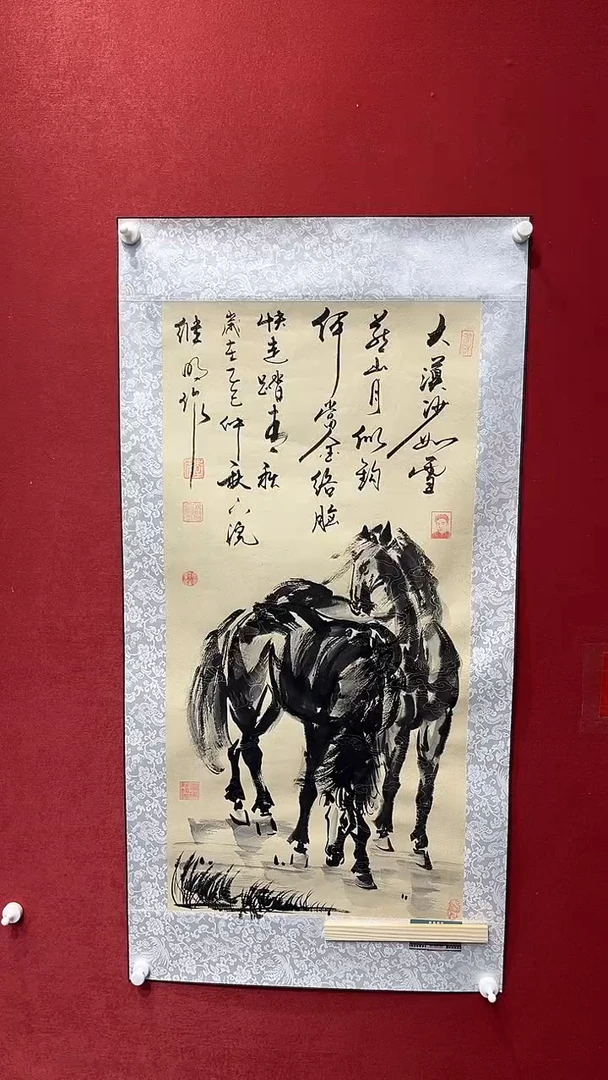 大漠沙如雪
燕山月似钩
何當金络脑
快走踏清秋
歲在乙巳仲秋下浣
明作